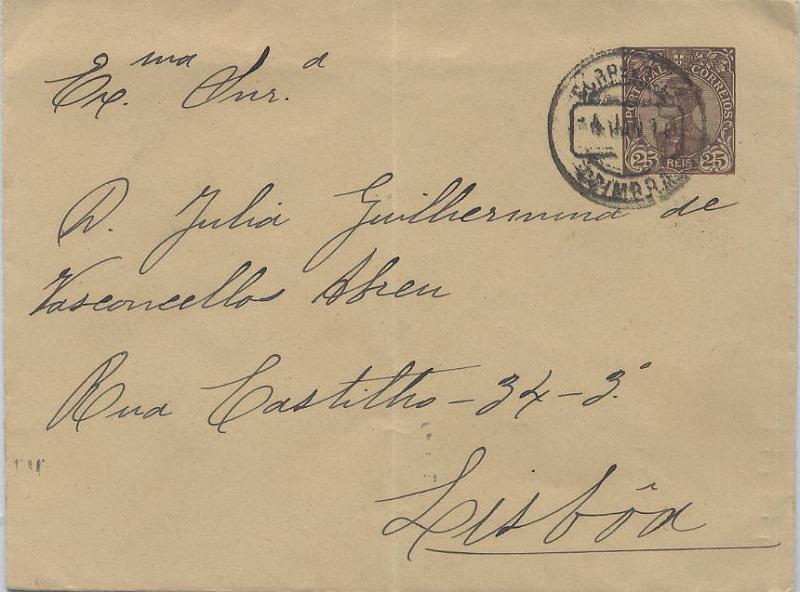 Ex.ma Snr.a
PORTUGAL CORREIOS
25 REIS 25
COIMBRA
D. Julia Guilhermina de
Vasconcellos Abreu
Rua Castilho - 34 - 3.º
Lisbôa